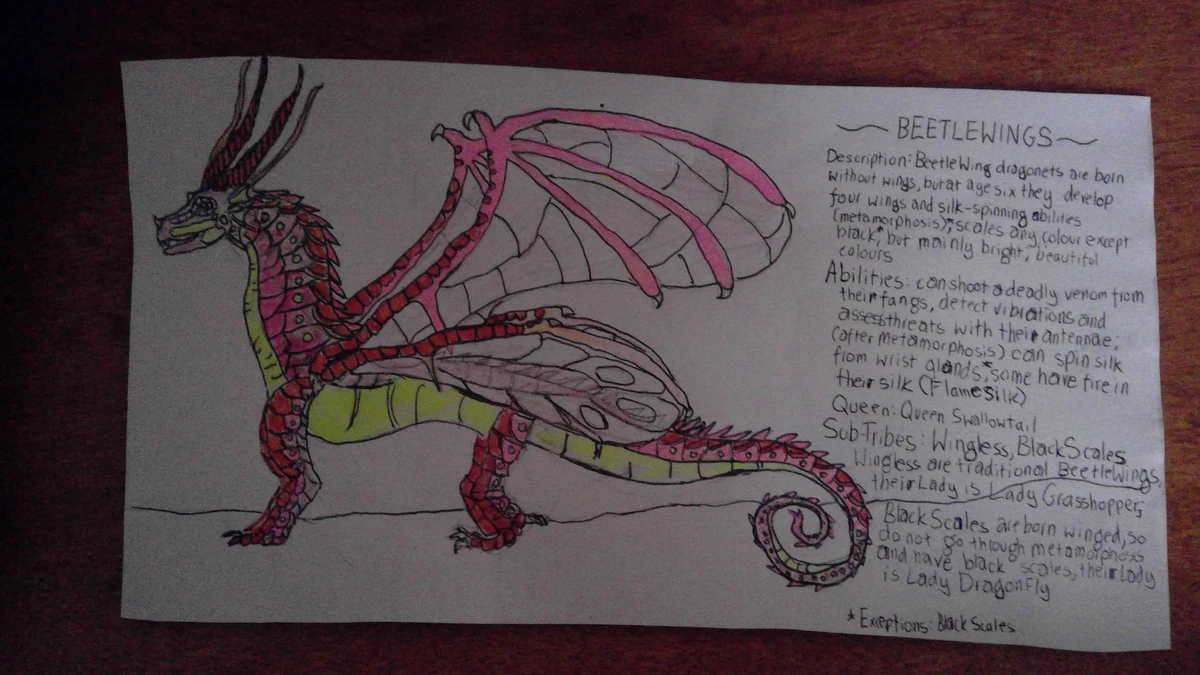 ~BEETLEWINGS~
Description: BeetleWing dragonets are born
without wings, but at age six they develop
four wings and silk-spinning abilities
(metamorphosis); scales any colour except
black*, but mainly bright, beautiful
colours
Abilities: can shoot a deadly venom from
their fangs, detect vibrations and
assess threats with their antennae;
(after metamorphosis) can spin silk
from wrist glands;*some have fire in
their silk (Flamesilk)
Queen: Queen Swallowtail
Sub-Tribes: Wingless, BlackScales
Wingless are traditional BeetleWings,
their Lady is Lady Grasshopper;
BlackScales are born winged, so
do not go through metamorphosis
and have black scales, their Lady
is Lady Dragonfly
*Exceptions: BlackScales